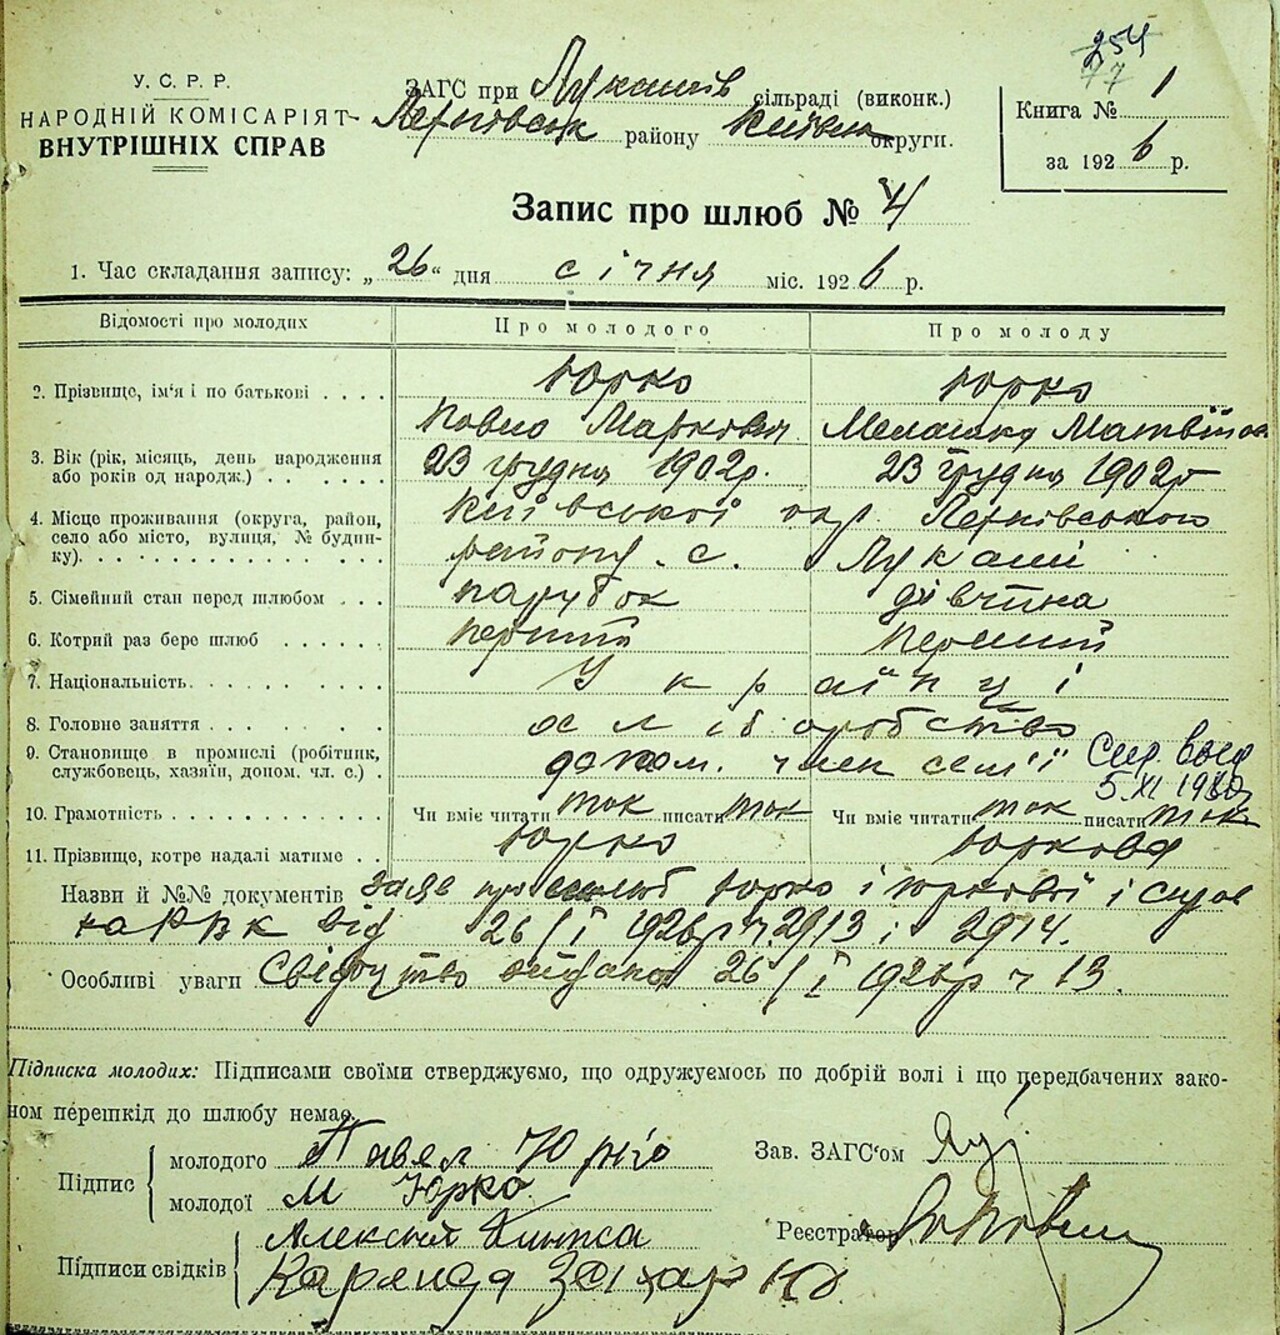 254
77
У. С. Р. Р.
НАРОДНІЙ КОМІСАРІЯТ
ВНУТРІШНІХ СПРАВ
ЗАГС при Лукашів сільраді (виконк.)
району Київськ округи.
Книга № 1
за 1926 р.
Запис про шлюб № 4
1. Час складання запису: „26“ дня січня міс. 1926 р.
Відомості про молодих Про молодого Про молоду
2. Прізвище, ім‘я і по батькові . . . . Юрко Юрко
Павло Маркович Мелашка Матвіїов
3. Вік (рік, місяць, день народження
або років од народж.) . . . . . . . 23 грудня 1902р. 23 грудня 1902р
4. Місце проживання (округа, район,
село або місто, вулиця, № будин-
ку). . . . . . . . . . . . . . . Київської окр.
району. с. Лукаші
5. Сімейний стан перед шлюбом . . . парубок дівчина
6. Котрий раз бере шлюб . . . . . . перший перший
7. Національність. . . . . . . . . . Українці
8. Головне заняття . . . . . . . . . хліборобство
9. Становище в промислі (робітник,
службовець, хазяїн, допом. чл. с.) . допом. член сем'ї
5.XI
10. Грамотність . . . . . . . . . . . Чи вміє читати так писати так Чи вміє читати так писати так
11. Прізвище, котре надалі матиме . . Юрко Юркова
Назви й №№ документів заяв про шлюб Юрко і Юркової і
від 26/I 1926р ч. 2913 і 2914.
Особливі уваги Свідоцтво видано 26/I 1926р ч 13.
Підписка молодих: Підписами своїми стверджуємо, що одружуємось по добрій волі і що передбачених зако-
ном перешкід до шлюбу немає.
Підпис
молодого Павел Юрко
молодої М Юрко
Зав. ЗАГС‘ом
Реєстратор
Підписи свідків
Алексій
Захар